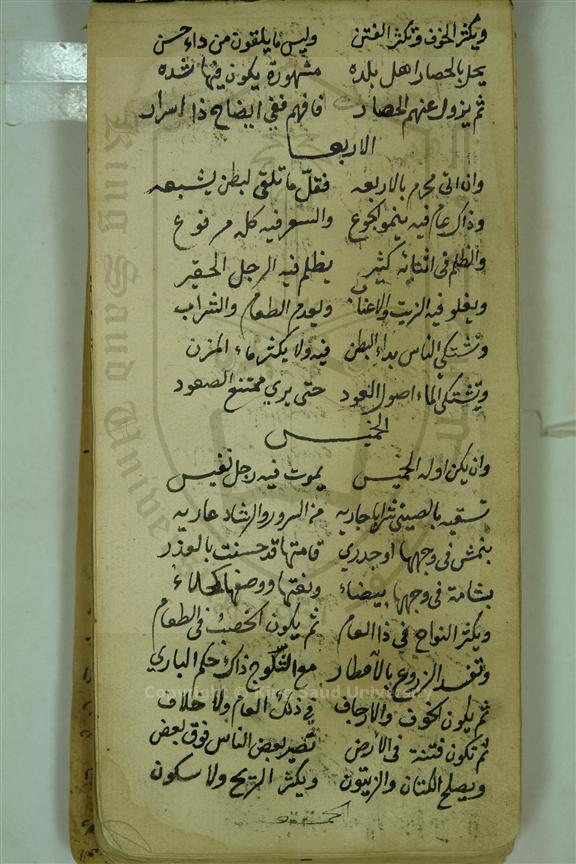 ويكثر الخوف وتكثر الفتن وليس ما يلقون من داء حسن
يحل بالحصار اهل بلده مشهورة يكون فيها شده
ثم يزول عنهم الحصار فافهم ففي ايضاح ذا اسرار
الاربعا
وان اتى محرم بالاربعه فقلّ ما تلقى لبطن يشبعه
وذاك عام فيه ينمو الجوع والسعر فيه كله مرفوع
والظلم في اثنائه كثير يظلم فيه الرجل الحقير
ويغلو فيه الزيت والاعناب ويعدم الطعام والشراب
وتشتكي الناس بداء البطن فيه ولا يكثر ماء المزن
ويشتكي الماء اصول العود حتى يري ممتنع الصعود
الخميس
وان يكن اوله الخميس يموت فيه رجل نفيس
تسقيه بالصيني جاريه من السرور والرشاد عاريه
بنمش في وجهها او جدري قامتها قد حسنت بالوزر
بشامة في وجهها بيضاء ونعتها ووصفها
ويكثر النواح في ذا العام ثم يكون الخصب في الطعام
وتفسد الزروع بالامطار مع الثلوج ذاك حكم الباري
ثم يكون الخوف والارجاف في ذلك العام ولا خلاف
ثم تكون فتنة في الارض تصير بعض الناس فوق بعض
ويصلح الكتان والزيتون ويكثر الريح ولا سكون
King Saud University
Copyright © King Saud University